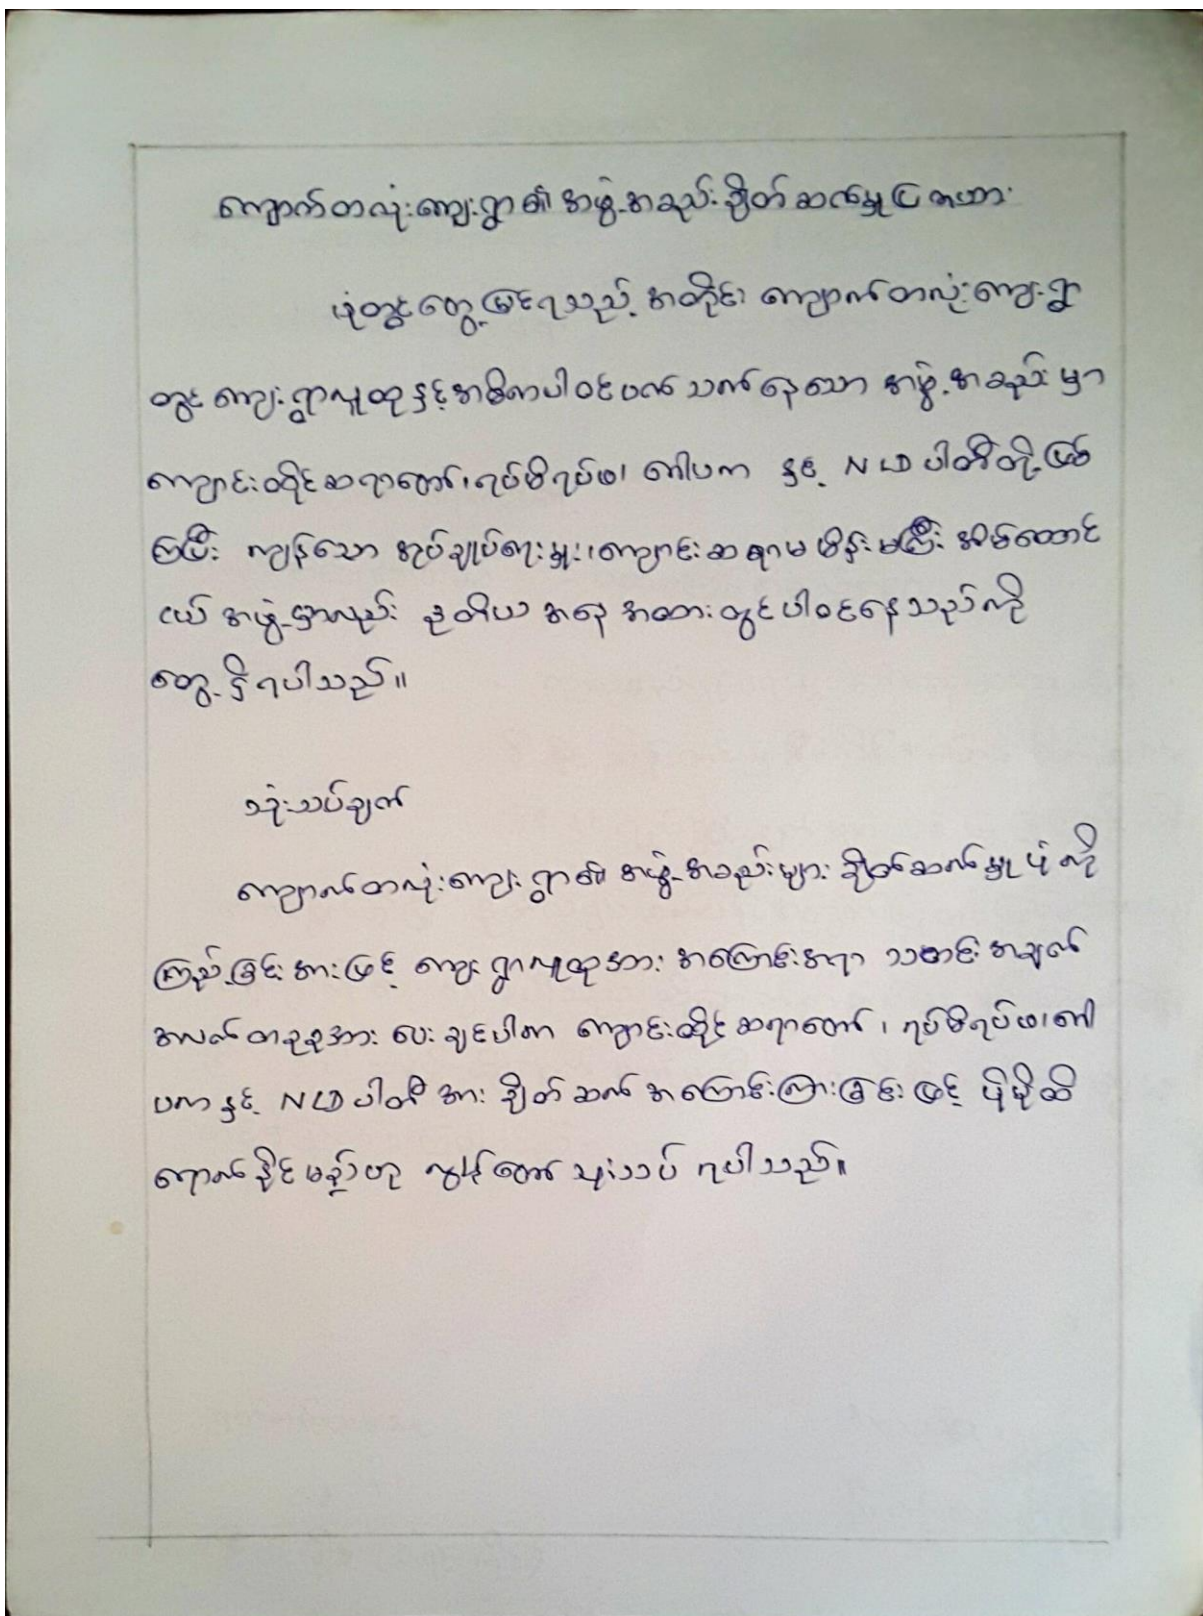 ကျောက်တလုံးကျေးရွာ၏ အဖွဲ့အစည်းချိတ်ဆက်မှုပြဇယား
ပုံတွင်တွေ့မြင်ရသည့် အတိုင်း ကျောက်တလုံးကျေးရွာ
တွင် ကျေးရွာလူထုနှင့်အဓိကပါဝင်ပတ်သက်နေသော အဖွဲ့အစည်းမှာ
ကျောင်းထိုင်ဆရာတော်၊ ရပ်မိရပ်ဖ၊ ၏ပက နှင့် NLD ပါတီတို့ဖြစ်
ကြပြီး ကျန်သော အုပ်ချုပ်ရေးမှူး၊ ကျောင်းဆရာမ မိန်းမကြီး အိမ်ထောင်
ငယ် အဖွဲ့မှာလည်း ဒုတိယ အနေအထားတွင်ပါဝင်နေသည်ကို
တွေ့ရှိရပါသည်။
သုံးသပ်ချက်
ကျောက်တလုံးကျေးရွာ၏ အဖွဲ့အစည်းများ ချိတ်ဆက်မှုပုံကို
ကြည့်ခြင်းအားဖြင့် ကျေးရွာလူထုအား အကြောင်းအရာ သတင်းအချက်
အလက်တခုခုအား ပေးချင်ပါက ကျောင်းထိုင်ဆရာတော်၊ ရပ်မိရပ်ဖ၊ ၏
ပကနှင့် NLD ပါတီအား ချိတ်ဆက်အကြောင်းကြားခြင်းဖြင့် ပိုမိုထိ
ရောက်နိုင်မည်ဟု ကျွန်တော် သုံးသပ်ရပါသည်။